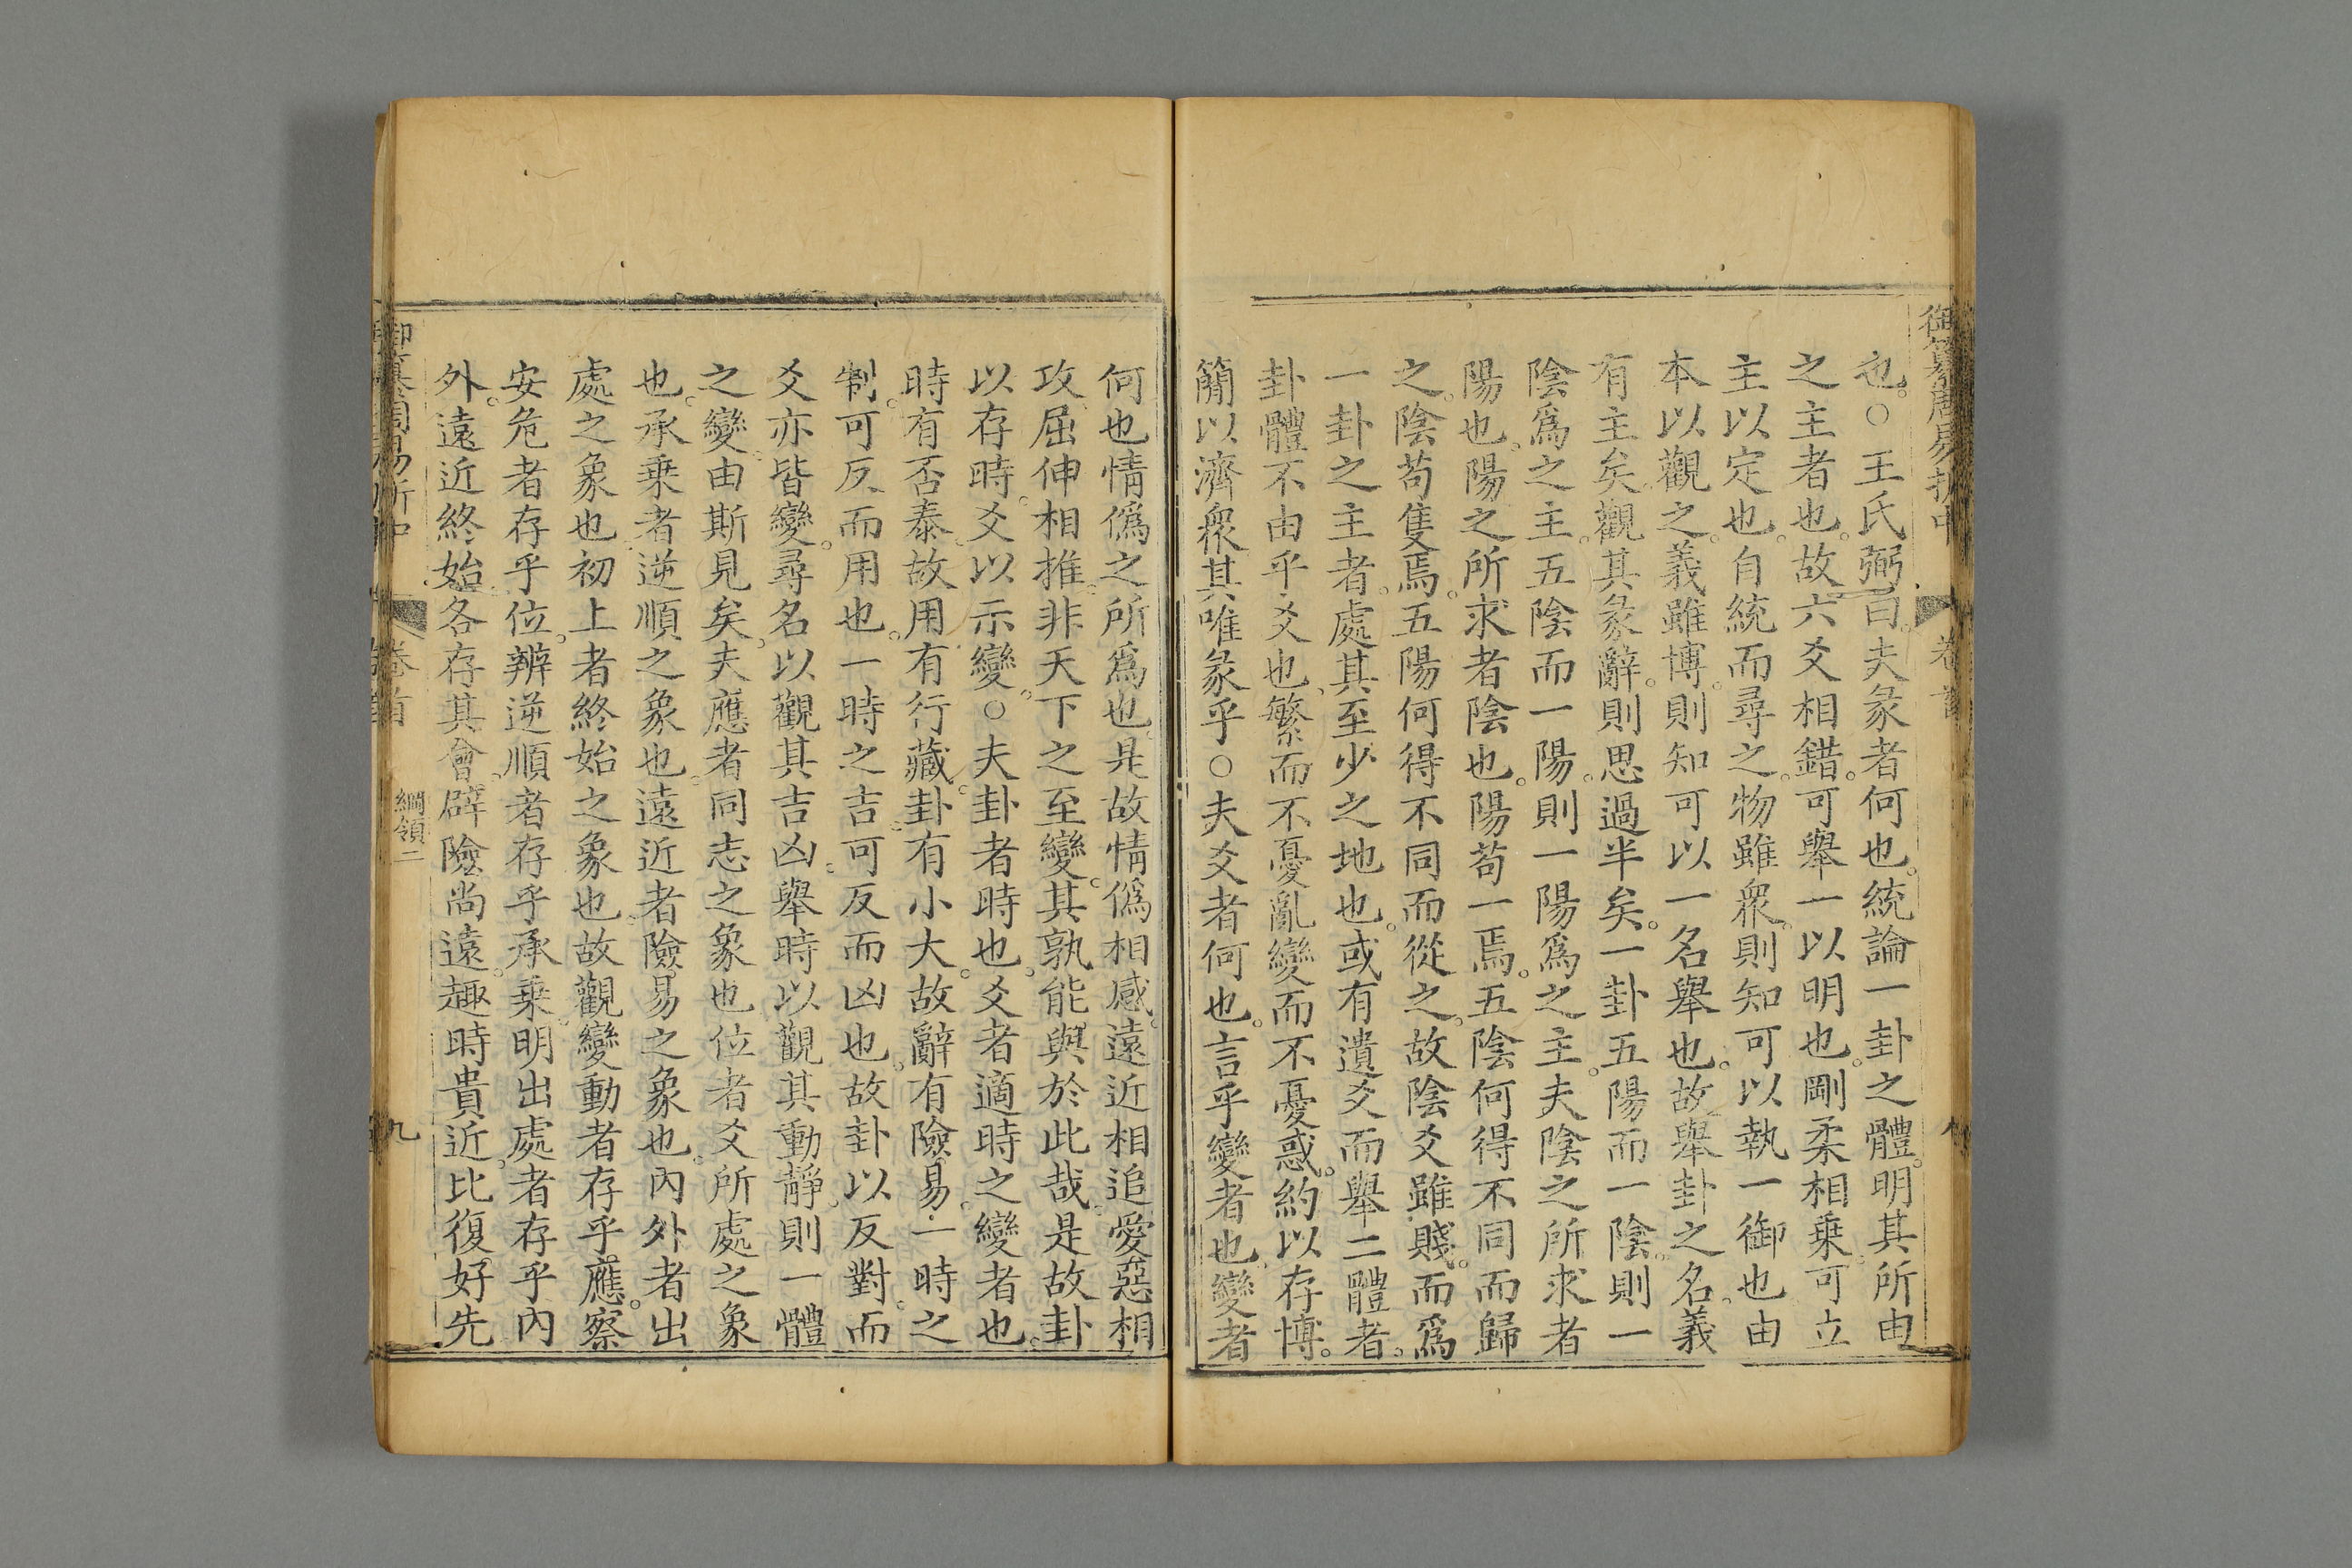 御纂周易折中
卷首
也。○王氏弼曰。夫彖者何也。統論一卦之體。明其所由
之主者也。故六爻相錯。可舉一以明也。剛柔相乗。可立
主以定也。自統而尋之。物雖衆。則知可以執一御也由
本以觀之。義雖博。則知可以一名舉也。故舉卦之名。義
有主矣。觀其彖辭。則思過半矣。一卦五陽而一陰。則一
陰爲之主。五陰而一陽。則一陽爲之主。夫陰之所求者
陽也。陽之所求者陰也。陽苟一焉。五陰何得不同而歸
之。陰苟隻焉。五陽何得不同而從之。故陰爻雖賤。而爲
一卦之主者。處其至少之地也。或有遺爻而舉二體者。
卦體不由乎爻也。繁而不憂亂。變而不憂惑。約以存博。
簡以濟衆。其唯彖乎○夫爻者何也。言乎變者也。變者
何也。情僞之所爲也。是故情僞相感。遠近相追。愛惡相
攻。屈伸相推。非天下之至變。其孰能與於此哉。是故卦
以存時。爻以示變。○夫卦者時也。爻者適時之變者也。
時有否泰。故用有行藏。卦有小大。故辭有險易。一時之
制。可反而用也。一時之吉。可反而凶也。故卦以反對。而
爻亦皆變。尋名以觀其吉凶。舉時以觀其動靜。則一體
之變。由斯見矣。夫應者同志之象也位者爻所處之象
也。承乗者逆順之象也。遠近者險易之象也。內外者出
處之象也。初上者終始之象也。故觀變動者存乎應。察
安危者存乎位。辨逆順者存乎承乗。明出處者存乎內
外。遠近終始。各存其會。辟險尚遠。趣時貴近。比復好先
御纂周易折中
卷首
綱領二
九